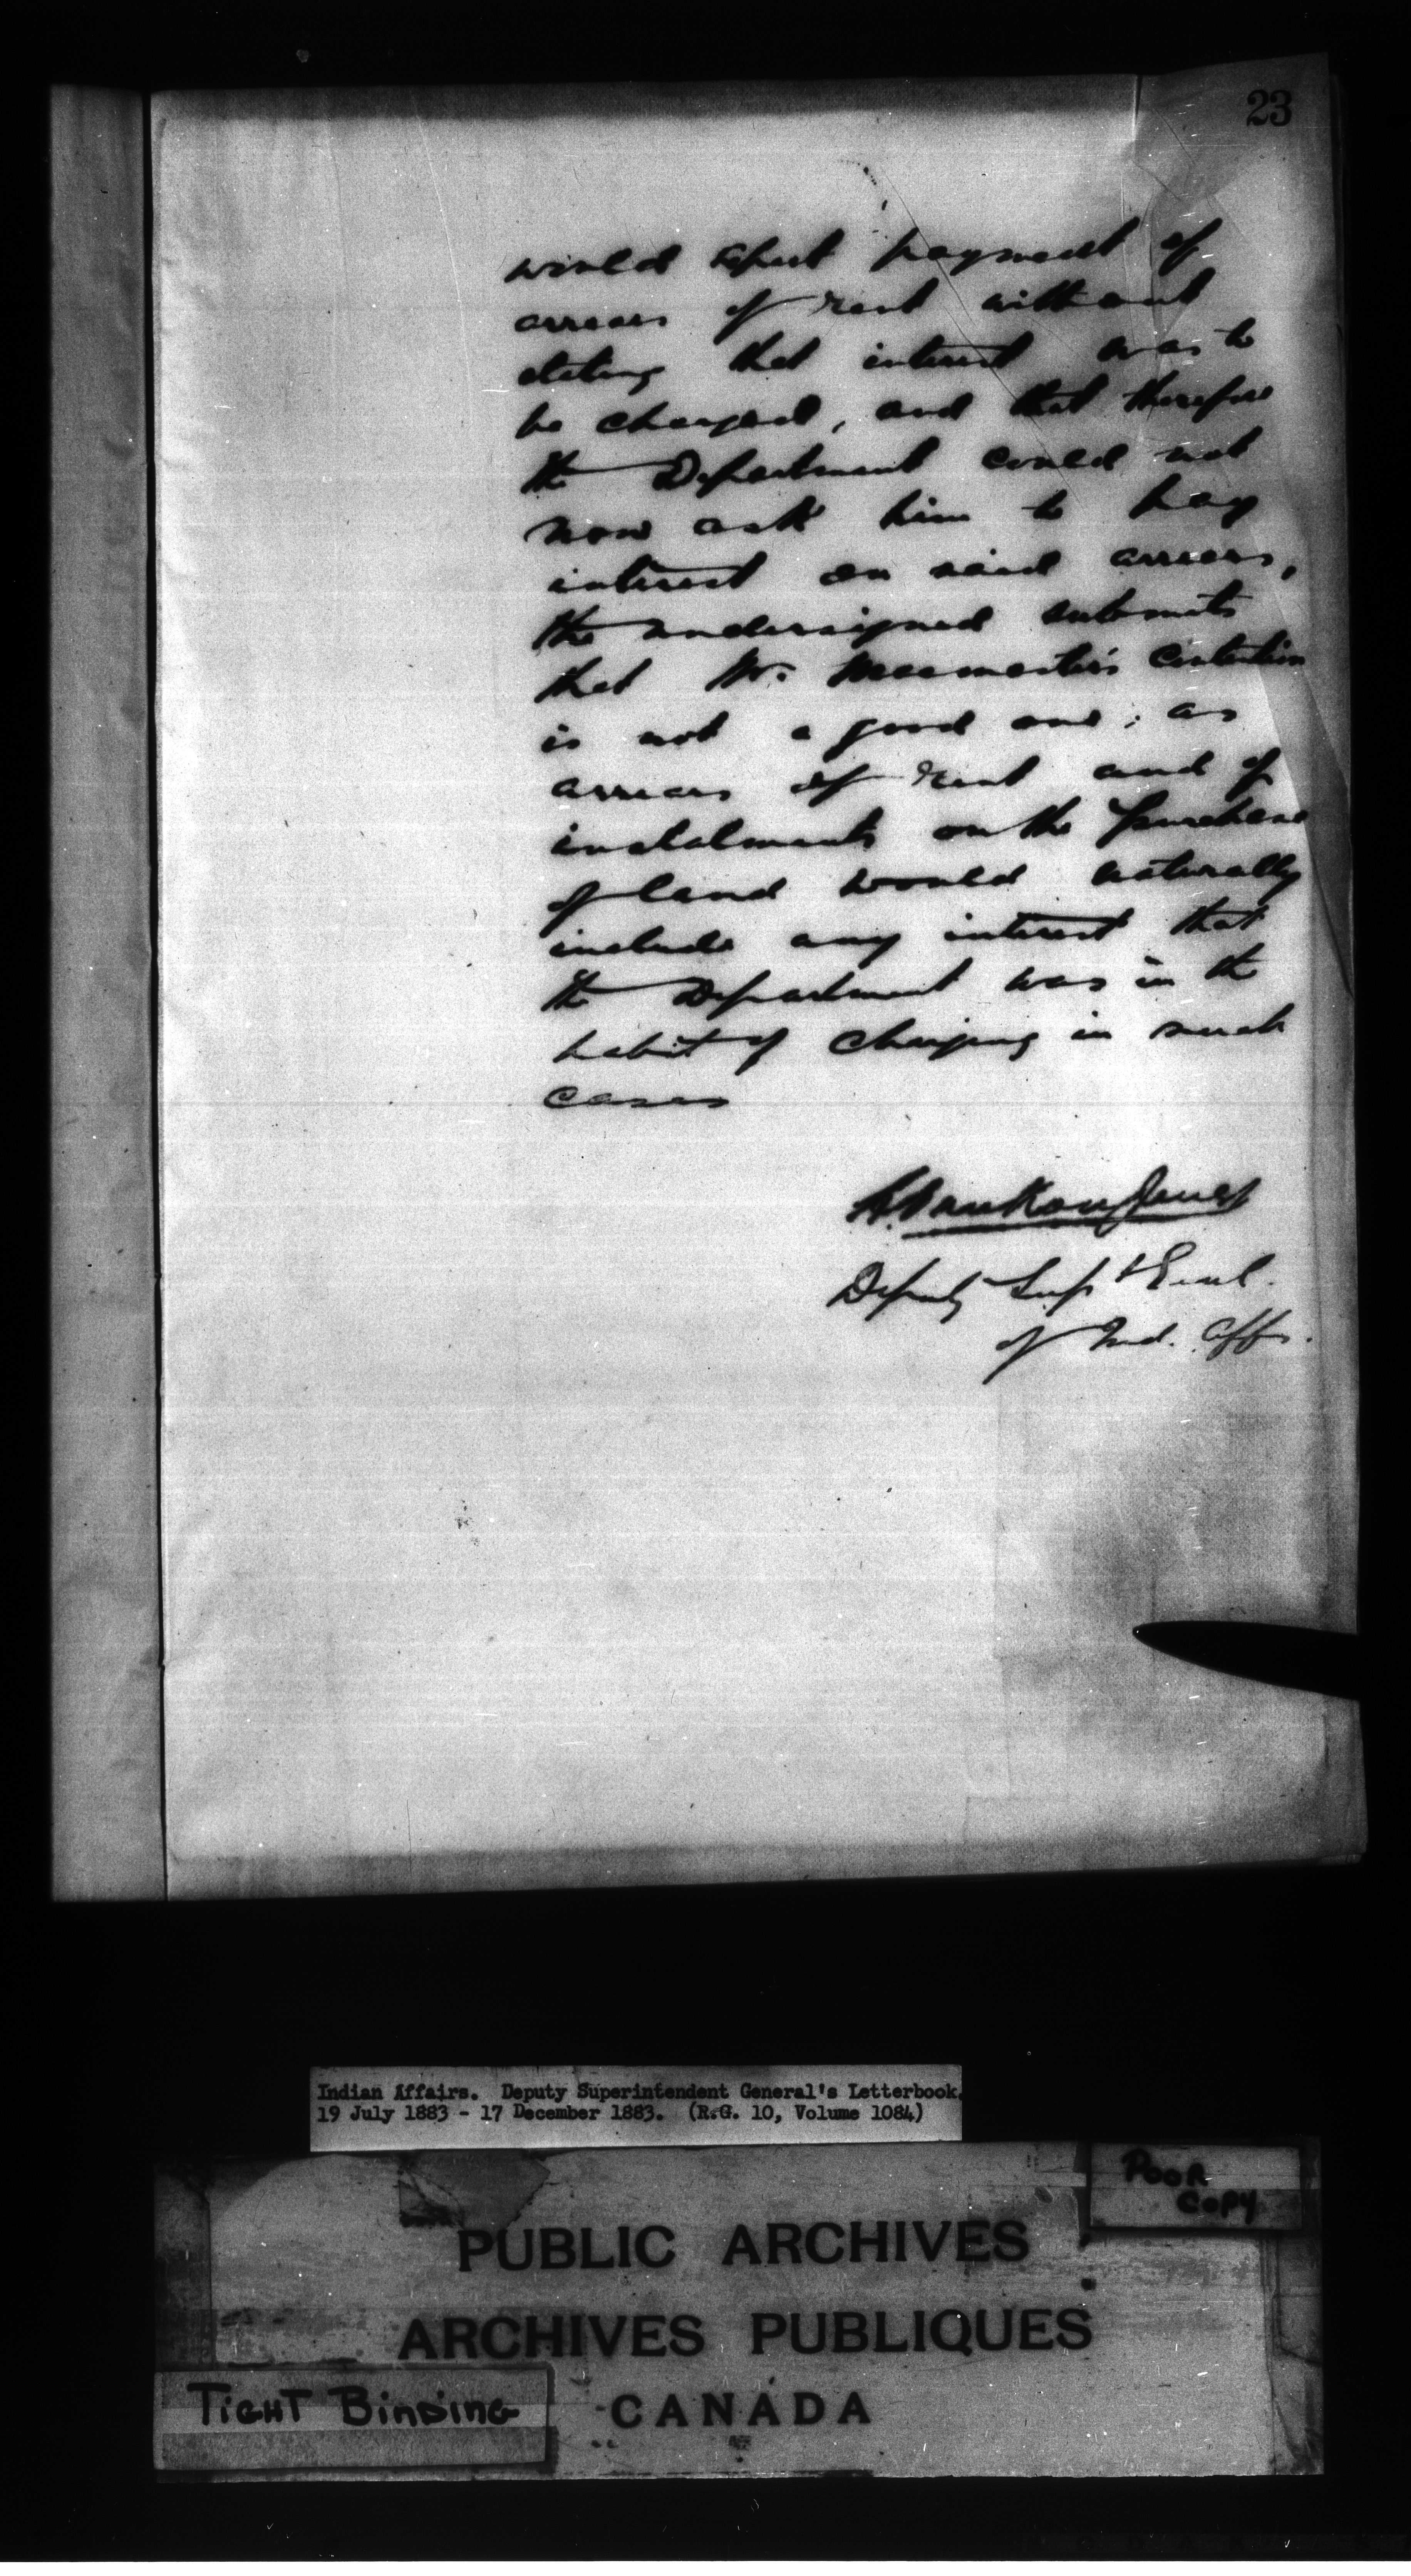 23
would expect payment of
arrears of rent without
stating that interest was to
be charged, and that therefore
the Department could not
now ask him to pay
interest on said arrears,
the undersigned submits
that Mr. Macmaster's contention
is not a good one; as
arrears of rent and of
instalments on the purchase
of land would naturally
include any interest that
the Department was in the
habit of charging in such
cases
L. VanKoughnet
Deputy Supt Genl.
of Ind. Affs.
Indian Affairs. Deputy Superintendent General's Letterbook.
19 July 1883 - 17 December 1883. (R.G. 10, Volume 1084)
POOR
COPY
PUBLIC ARCHIVES
ARCHIVES PUBLIQUES
CANADA
TIGHT BINDING